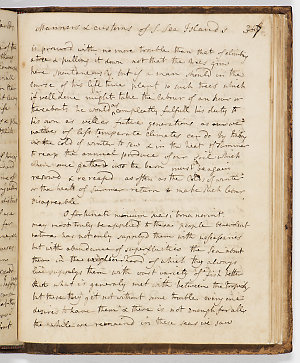 Manners & customs of S. Sea Islands 347
is procurd with no more trouble than that of climbing
a tree & pulling it down not that the trees grow
here spontaneously but if a man should in the
course of his life time plant 10 such trees which
if well done might take the labour of an hour or
thereabouts he would as compleatly fulfull his duty to
his own as well as future generations as we natives
of less temperate climates can do by toiling
in the cold of winter to sew & in the heat of summer
to reap the annual produce of our soil which
when once gatherd into the barn must be again
resowd & re reapd as often as the Colds of winter
or the heats of Summer return to make such labour
disagreable
O fortunati nimium sua si bona norint
may most truly be applied to these people benevolent
nature has not only supplied them with nescessaries
but with abundance of superfluities the Sea about
them in the neighbourhood of which they always
live supplys them with vast variety of fish better
than what is generaly met with between the tropicks
but these they get not without some trouble every one
desires to have them & there is not enough for all
tho while we remaind in these seas we saw